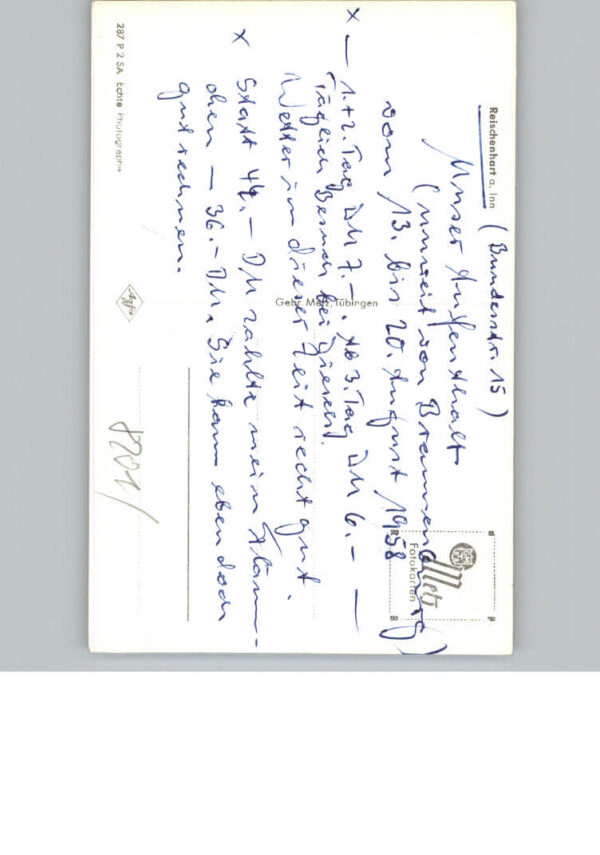 Reischenhart a. Inn (Bundesstr. 15)
Unser Aufenthalt
(unweit von Brannenburg)
vom 13. bis 20. August 1958
x — 1.+2. Tag DM 7.–. Ab 3. Tag DM 6.– —
Täglich Besuch bei
Wetter in dieser Zeit recht gut.
x Statt 44.– DM zahlte mein Fläm-
chen – 36.– DM. Sie kann eben doch
gut rechnen.
Metz
Fotokarten
Gebr. Metz, Tübingen
287 P 2 SA Echte Photographie
Agfa
8201/